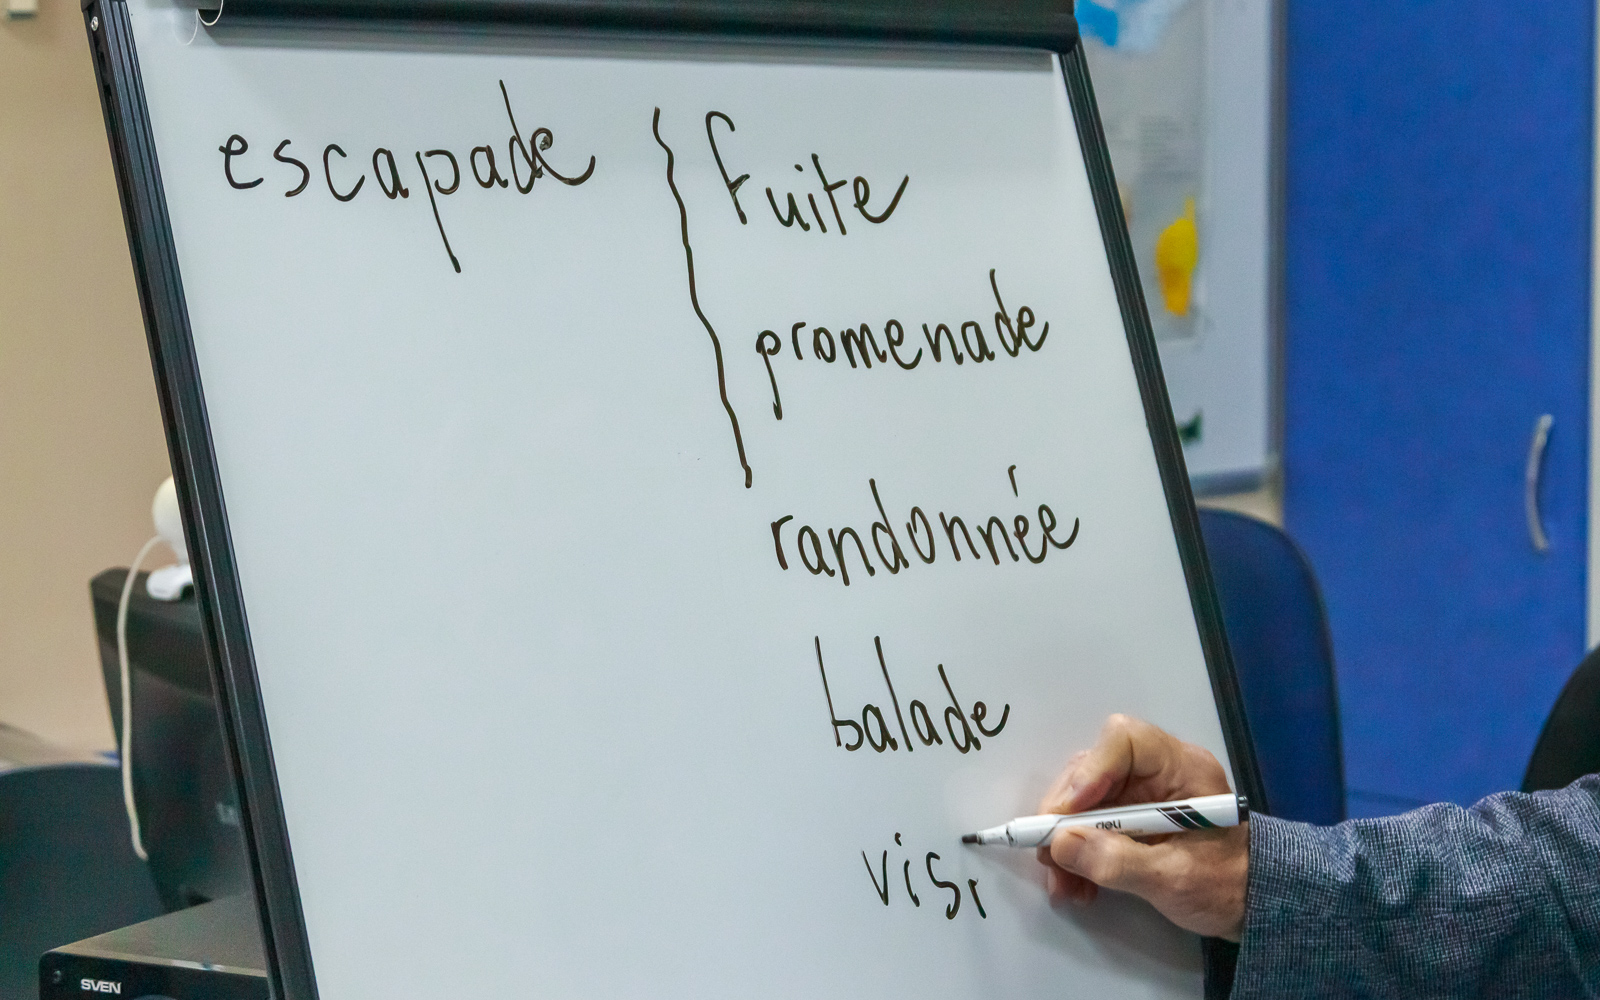 escapade { fuite
promenade
randonnée
balade
visi
deli
SVEN